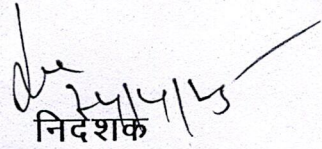 24/4/25
निदेशक